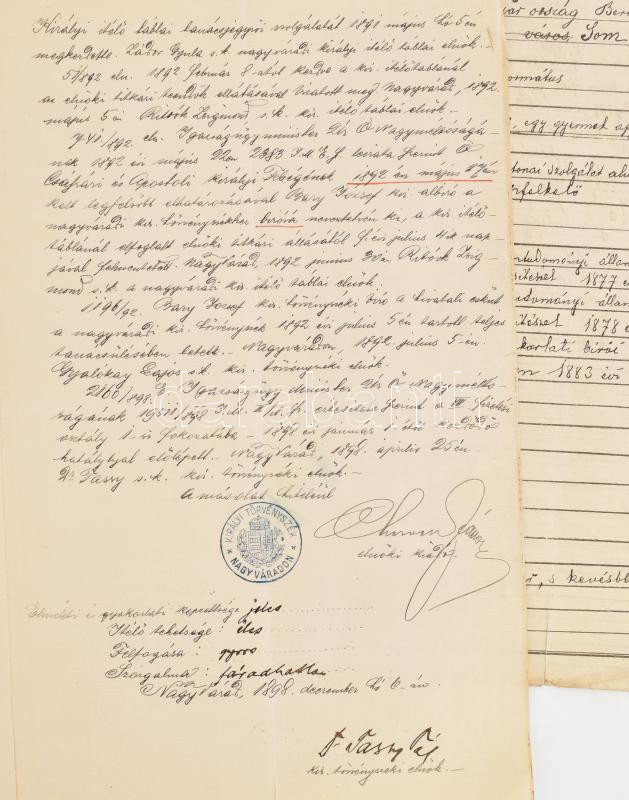 Királyi itélő táblai tanácsjegyzői szolgálatát 1891 május hó 5én
megkezdette. Gyula s. k. nagyváradi királyi itélő táblai elnök. –
1892 február 8-ától kezdve a kir. itélőtáblánál
az elnöki titkári teendők ellátásával bízatott meg Nagyvárad, 1892
május 5én Ritoók Zsigmond s. k. kir. itélő táblai elnök. –
eln. Igazságügyminister Úr Ő Nagyméltóságá-
nak 1892 évi május 22én I. M. E. sz. leirata szerint Ő
Császári és Apostoli királyi Felségének 1892 évi május
kelt legfelsőbb elhatározásával Bary József kir. albíró a
nagyváradi kir. törvényszékhez bíróvá neveztetvén ki, a kir. itélő-
táblánál elfoglalt elnöki titkári állásától f. évi július 4-ik nap-
jával felmentetett. Nagyvárad, 1892 június Ritoók Zsig-
mond s. k. a nagyváradi kir. itélő táblai elnök.
1196/92. Bary József kir. törvényszéki bíró a hivatali esküt
a nagyváradi kir. törvényszék 1892 évi július 5én tartott teljes
tanácsülésében letette. Nagyváradon, 1892. július 5-én.
Gyalókay Lajos s. k. kir. törvényszéki elnök.
2160/898. E. Igazságügy minister Úr Ő Nagymélto-
ságának szerint a VII fizetési
osztály 1-ső fokozatába – 1898 évi január 1től kezdődő
hatálylyal előlépett. – Nagyvárad, 1898. április 25én –
Dr Tassy s. k. kir. törvényszéki elnök. –
A másolat hiteléül
János
elnöki kiadó.
KIRÁLYI TÖRVÉNYSZÉK NAGYVÁRADON
Elméleti és gyakorlati képzettsége jeles
Itélő tehetsége: éles
Felfogása: gyors
Szorgalma: fáradhatlan
Nagyvárad, 1898. december hó 6-án.
Dr Tassy Pál
kir. törvényszéki elnök. –
ország
város Som
egy gyermek
katonai szolgálat
népfelkelő
tudományi állam
1877
tudományi állam
1878
gyakorlati bírói
1883 évi
s kevésbb
darabanth